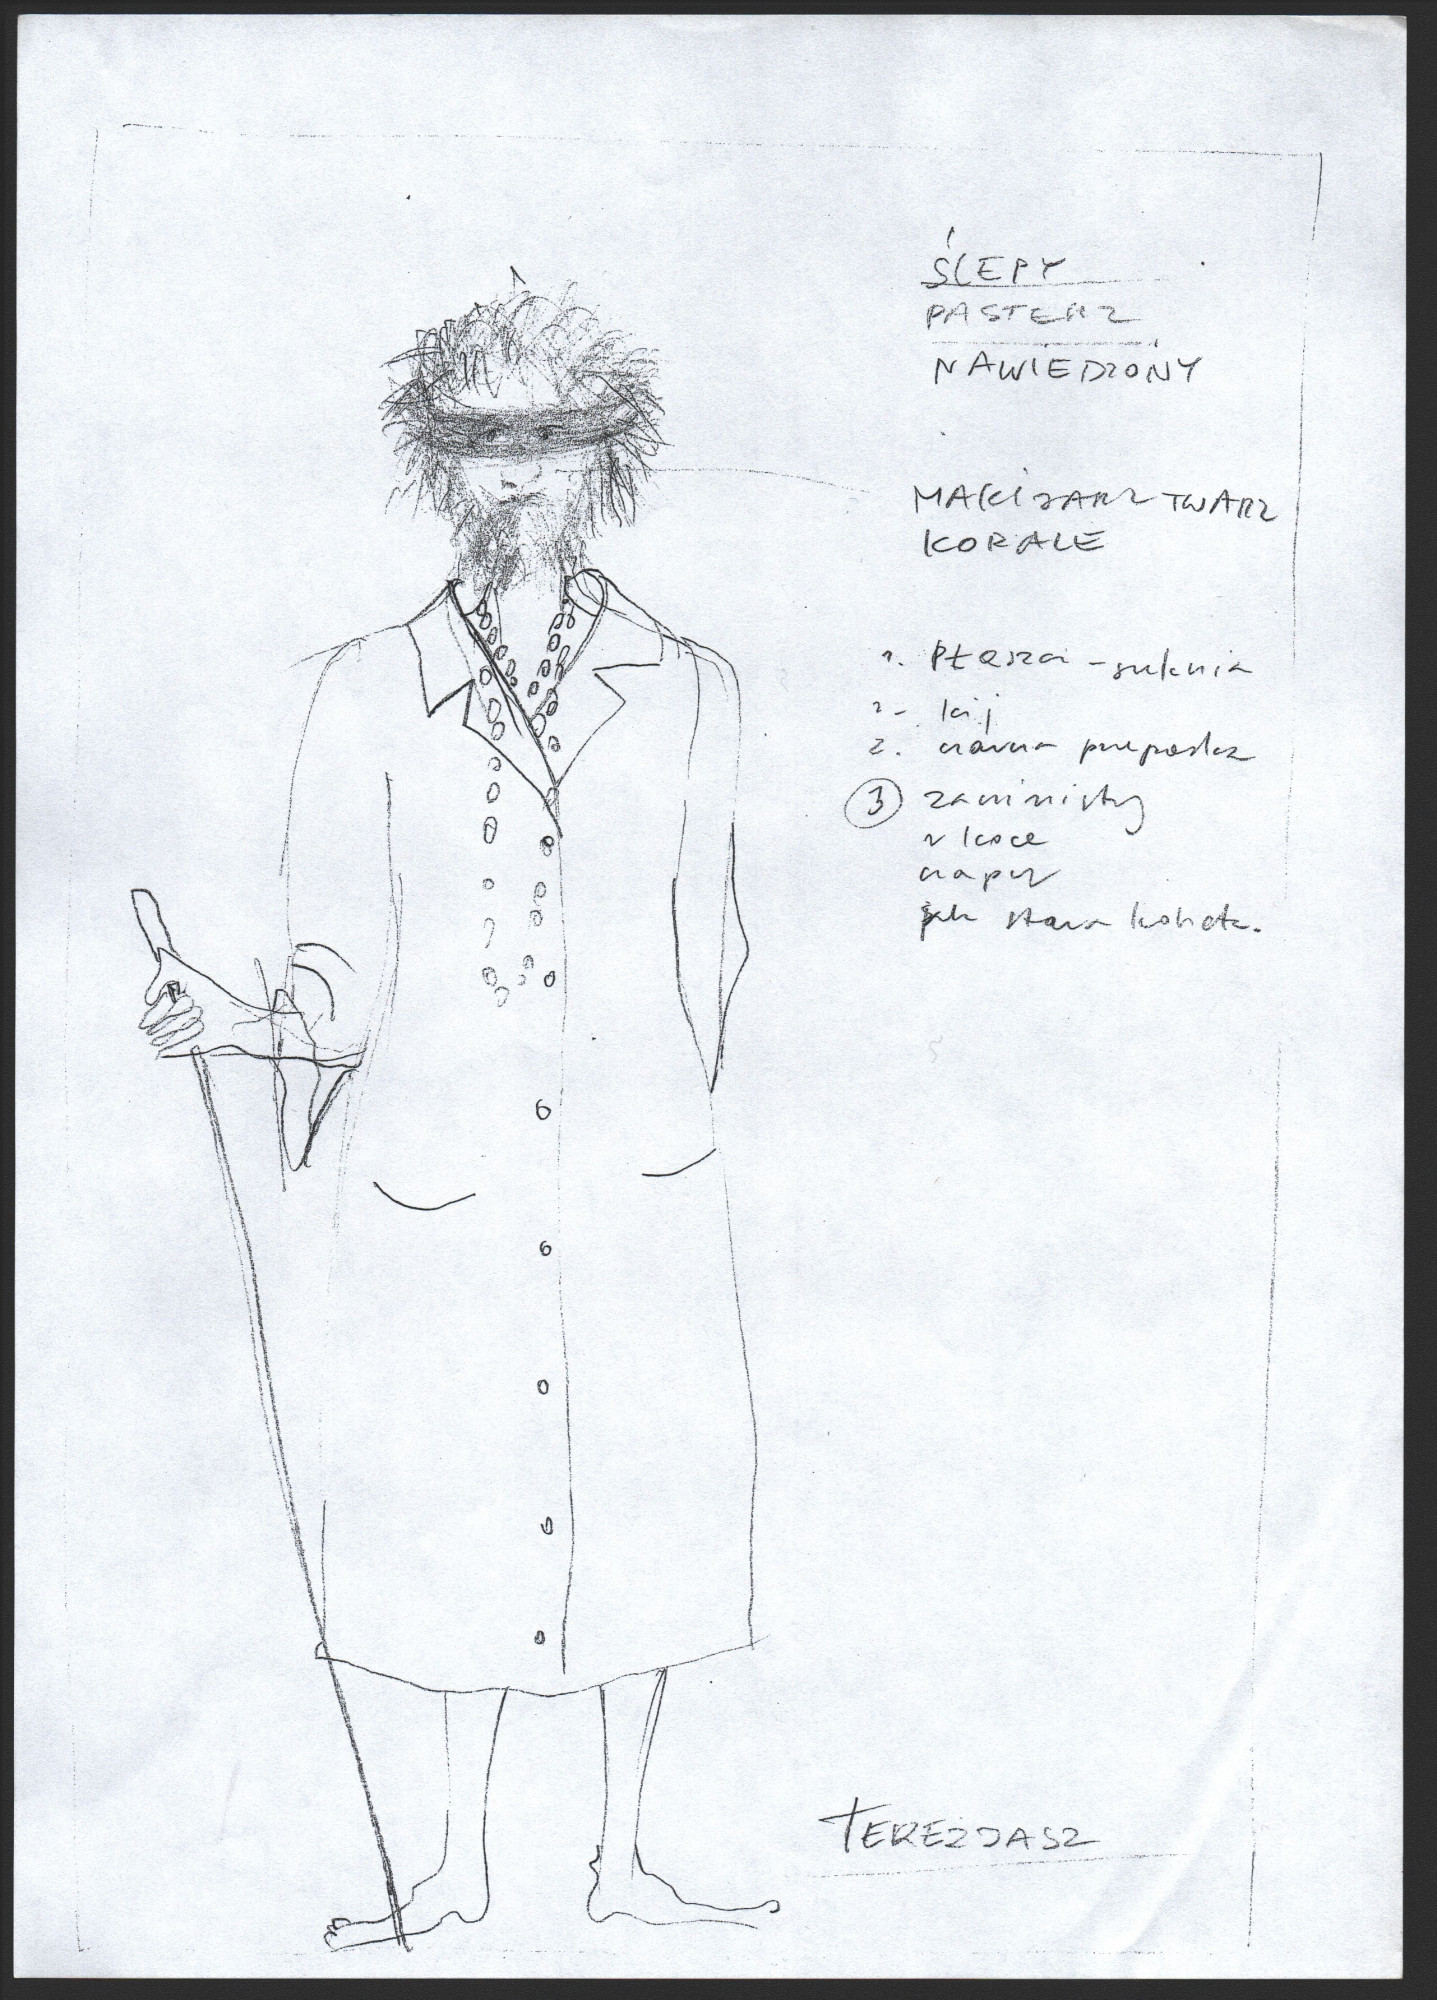 ŚLEPY
PASTERZ
NAWIEDZONY
MAKIJARZ TWARZ
KORALE
1. Płaszcz - suknia
2- kij
2. czarna przepaska
3 zawinięty
w koce
czapy
jak stara kobieta.
TEREZJASZ